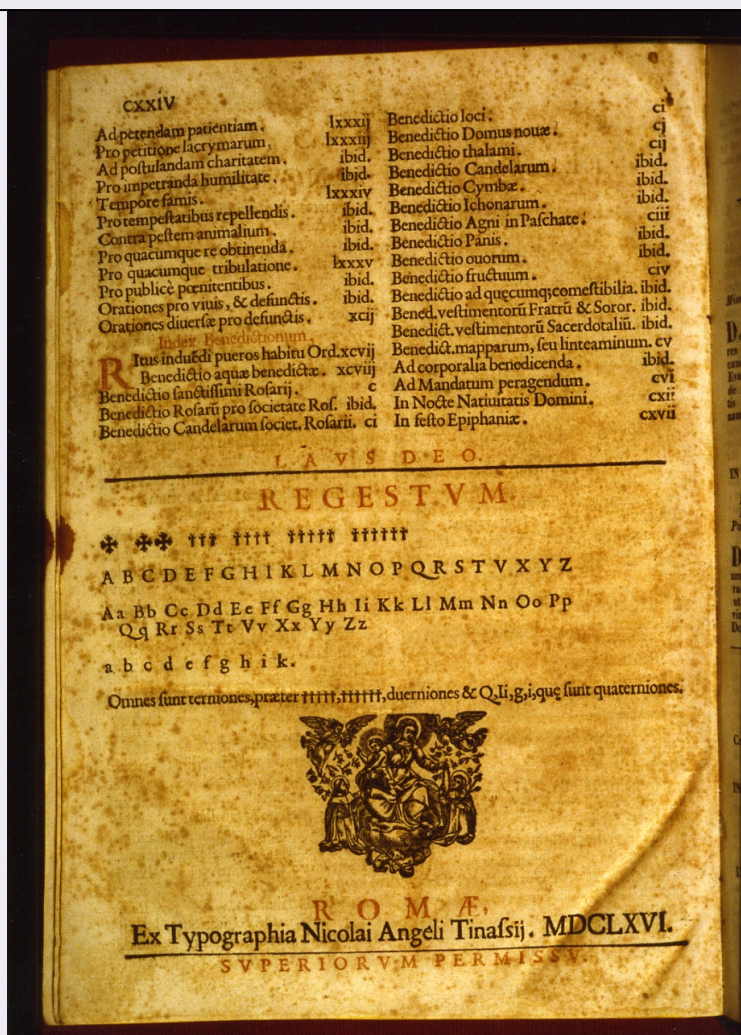 CXXIV
Ad petendam patientiam. lxxxij
Pro petitione lacrymarum. lxxxiij
Ad postulandam charitatem. ibid.
Pro impetranda humilitate. ibid.
Tempore famis. lxxxiv
Pro tempestatibus repellendis. ibid.
Contra pestem animalium. ibid.
Pro quacumque re obtinenda. ibid.
Pro quacumque tribulatione. lxxxv
Pro publicè pœnitentibus. ibid.
Orationes pro viuis, & defunctis. ibid.
Orationes diuersæ pro defunctis. xcij
Index Benedictionum.
Ritus induẽdi pueros habitu Ord. xcvij
Benedictio aquæ benedictæ. xcviij
Benedictio sanctissimi Rosarij. c
Benedictio Rosarũ pro societate Ros. ibid.
Benedictio Candelarum societ. Rosarii. ci
Benedictio loci. ci
Benedictio Domus nouæ. cj
Benedictio thalami. cij
Benedictio Candelarum. ibid.
Benedictio Cymbæ. ibid.
Benedictio Ichonarum. ibid.
Benedictio Agni in Paschate. ciii
Benedictio Panis. ibid.
Benedictio ouorum. ibid.
Benedictio fructuum. civ
Benedictio ad quęcumq; comestibilia. ibid.
Bened. vestimentorũ Fratrũ & Soror. ibid.
Benedict. vestimentorũ Sacerdotaliũ. ibid.
Benedict. mapparum, seu linteaminum. cv
Ad corporalia benedicenda. ibid.
Ad Mandatum peragendum. cvi
In Nocte Natiuitatis Domini. cxii
In festo Epiphaniæ. cxvii
LAVS DEO.
REGESTVM.
✠ ✠✠ ††† †††† ††††† ††††††
A B C D E F G H I K L M N O P Q R S T V X Y Z
Aa Bb Cc Dd Ee Ff Gg Hh Ii Kk Ll Mm Nn Oo Pp
Qq Rr Ss Tt Vv Xx Yy Zz
a b c d e f g h i k.
Omnes sunt terniones, præter †††††, ††††††, duerniones & Q, Ii, g, i, quę sunt quaterniones.
ROMÆ,
Ex Typographia Nicolai Angeli Tinassij. MDCLXVI.
SVPERIORVM PERMISSV.